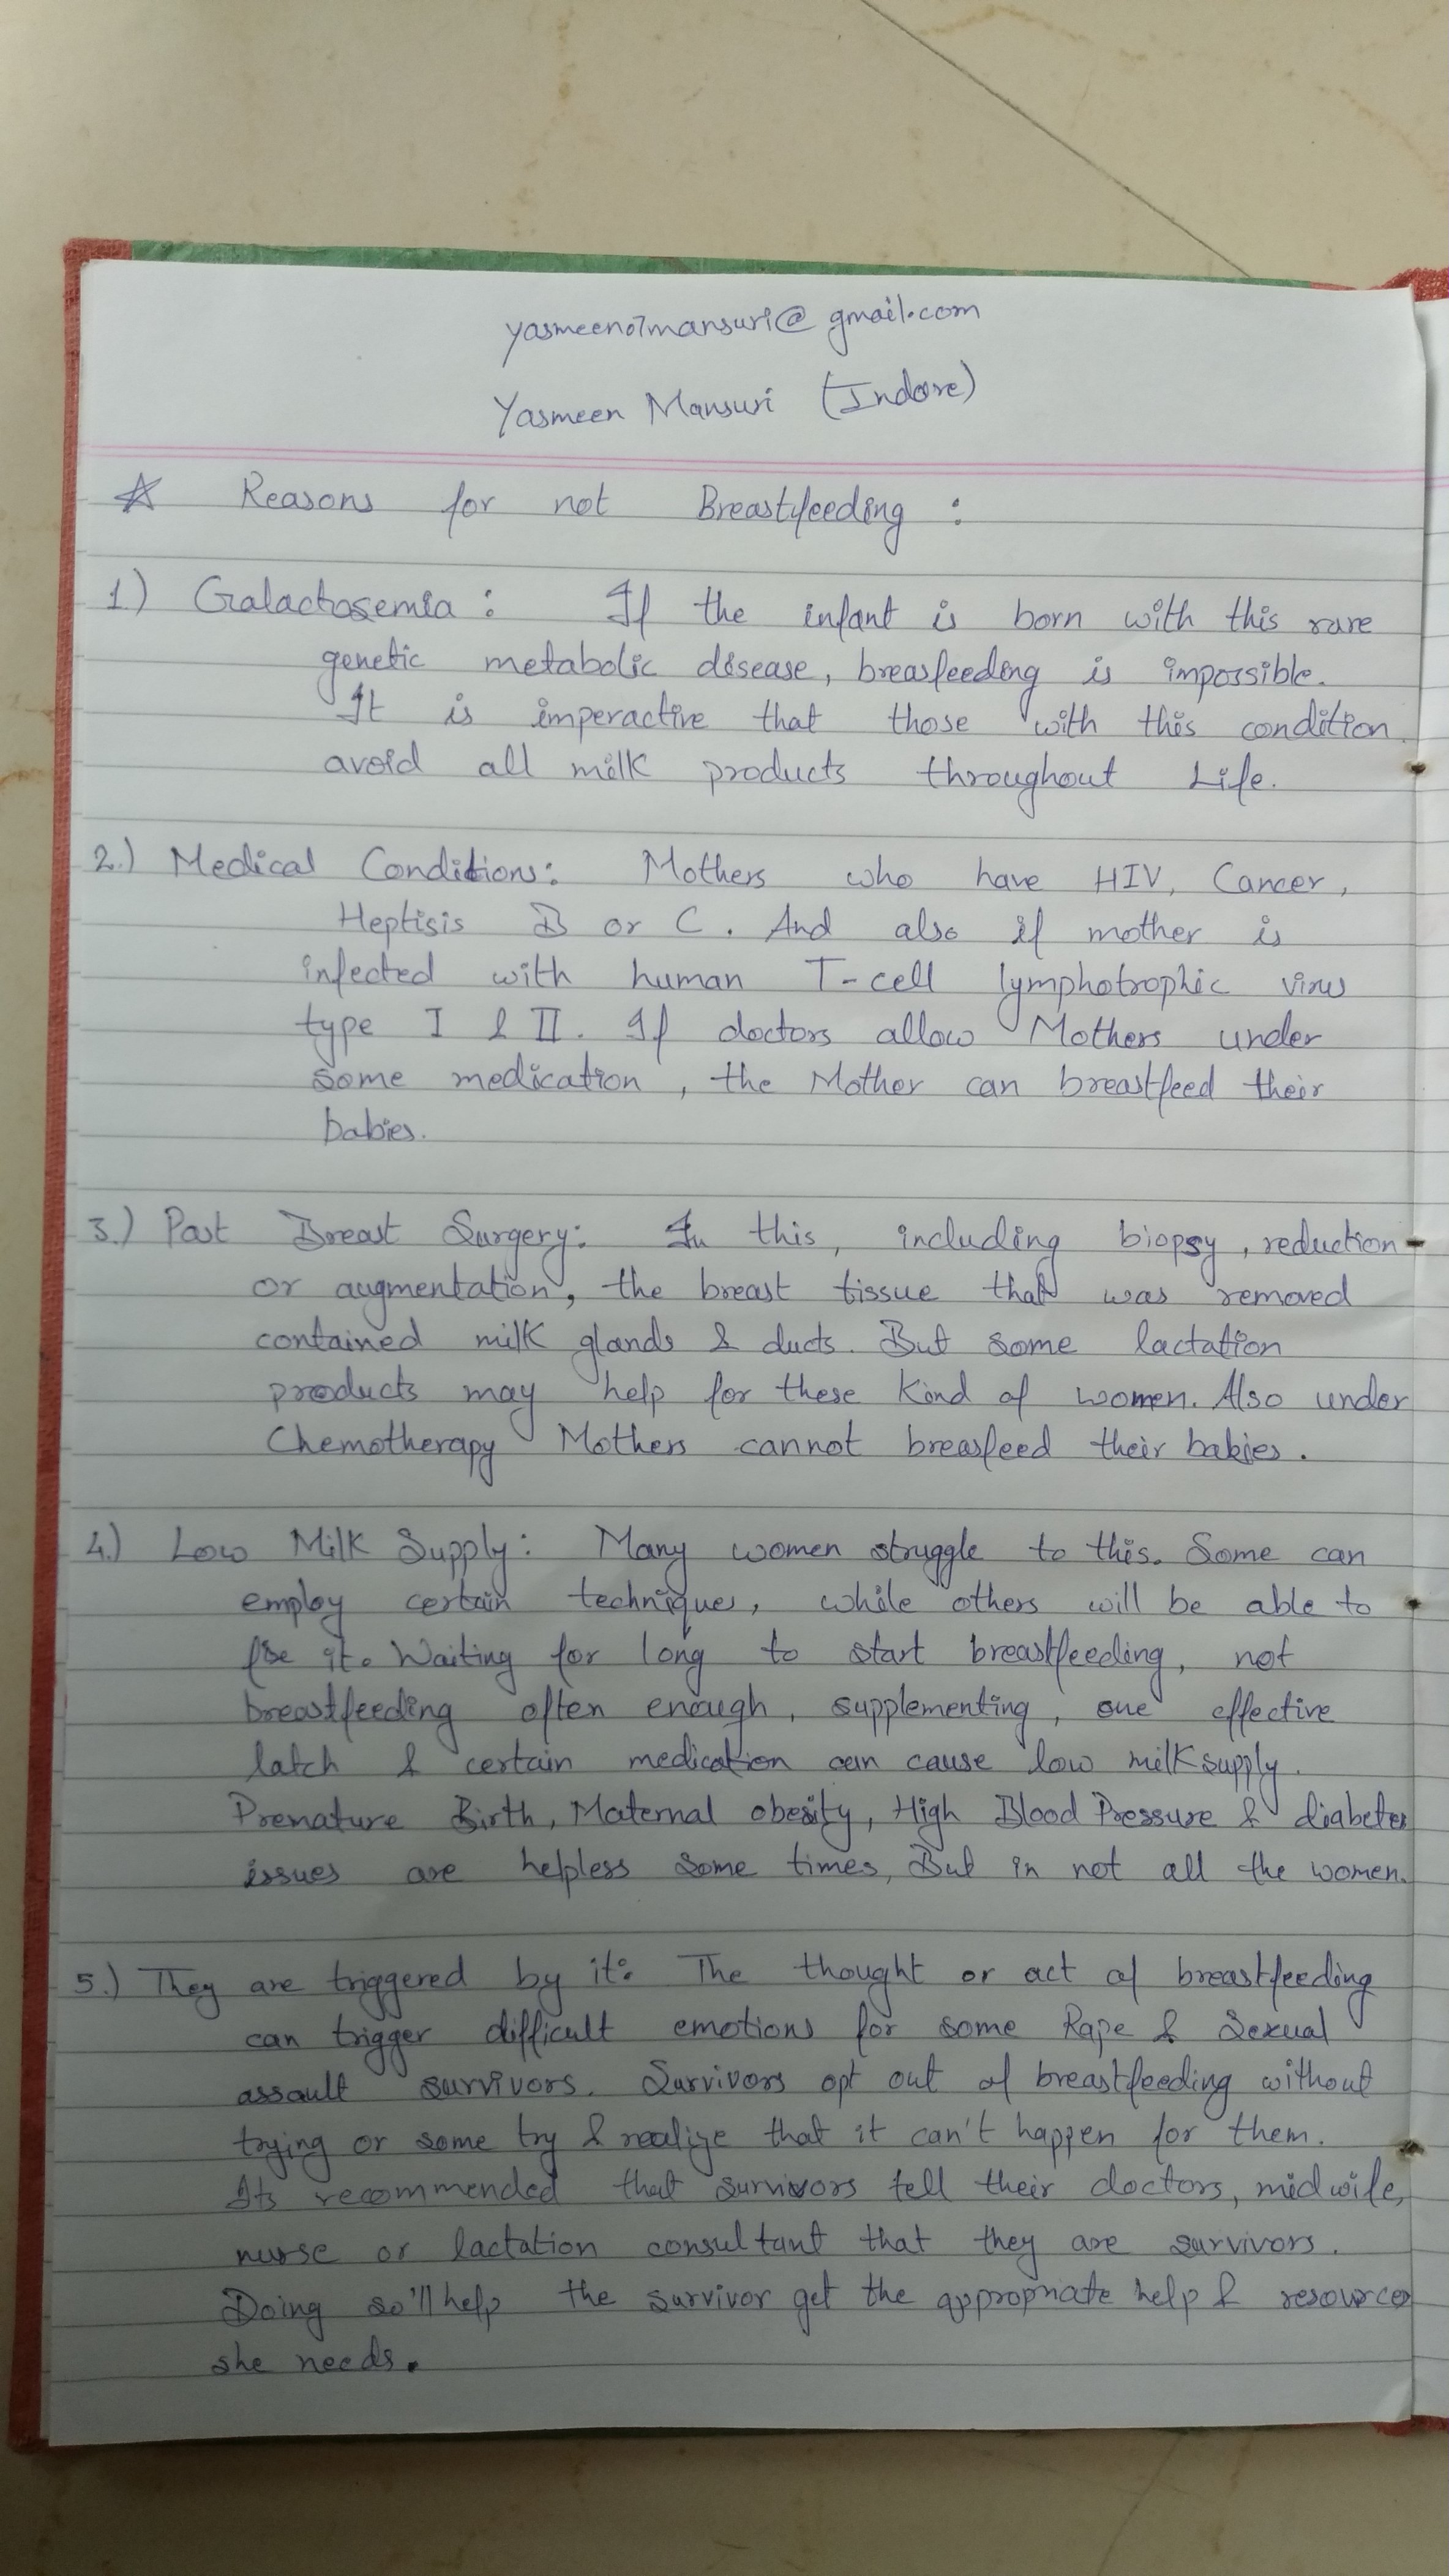 yasmeen07mansuri@gmail.com
Yasmeen Mansuri (Indore)
☆ Reasons for not Breastfeeding :
1) Galactosemia : If the infant is born with this rare
genetic metabolic disease, breasfeeding is impossible.
It is imperactive that those with this condition
avoid all milk products throughout Life.
2.) Medical Conditions: Mothers who have HIV, Cancer,
Heptisis B or C. And also if mother is
infected with human T-cell lymphotrophic virus
type I & II. If doctors allow Mothers under
some medication, the Mother can breastfeed their
babies.
3.) Past Breast Surgery: In this, including biopsy, reduction
or augmentation, the breast tissue that was removed
contained milk glands & ducts. But some lactation
products may help for these kind of women. Also under
Chemotherapy Mothers cannot breasfeed their babies.
4.) Low Milk Supply: Many women struggle to this. Some can
employ certain techniques, while others will be able to
it. Waiting for long to start breastfeeding, not
breastfeeding often enough, supplementing, one effective
latch & certain medication can cause low milk supply.
Premature Birth, Maternal obesity, High Blood Pressure & diabetes
issues are helpless some times, But in not all the women.
5.) They are triggered by it: The thought or act of breastfeeding
can trigger difficult emotions for some Rape & Sexual
assault survivors. Survivors opt out of breastfeeding without
trying or some try & realize that it can't happen for them.
Its recommended that survivors tell their doctors, midwife,
nurse or lactation consultant that they are survivors.
Doing so'll help the survivor get the appropriate help & resources
she needs.